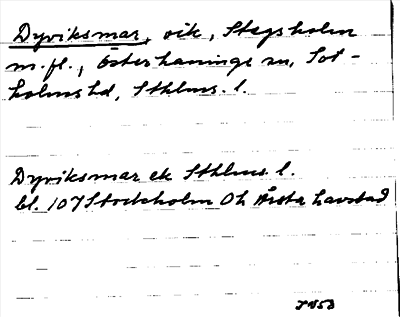 Dyviksmar, vik, Stegsholm
m.fl., Österhaninge sn, Sot-
holms hd, Sthlms. l.
Dyviksmar ek Sthlms. l.
bl. 107 Stockholm Oh Årsta havsbad